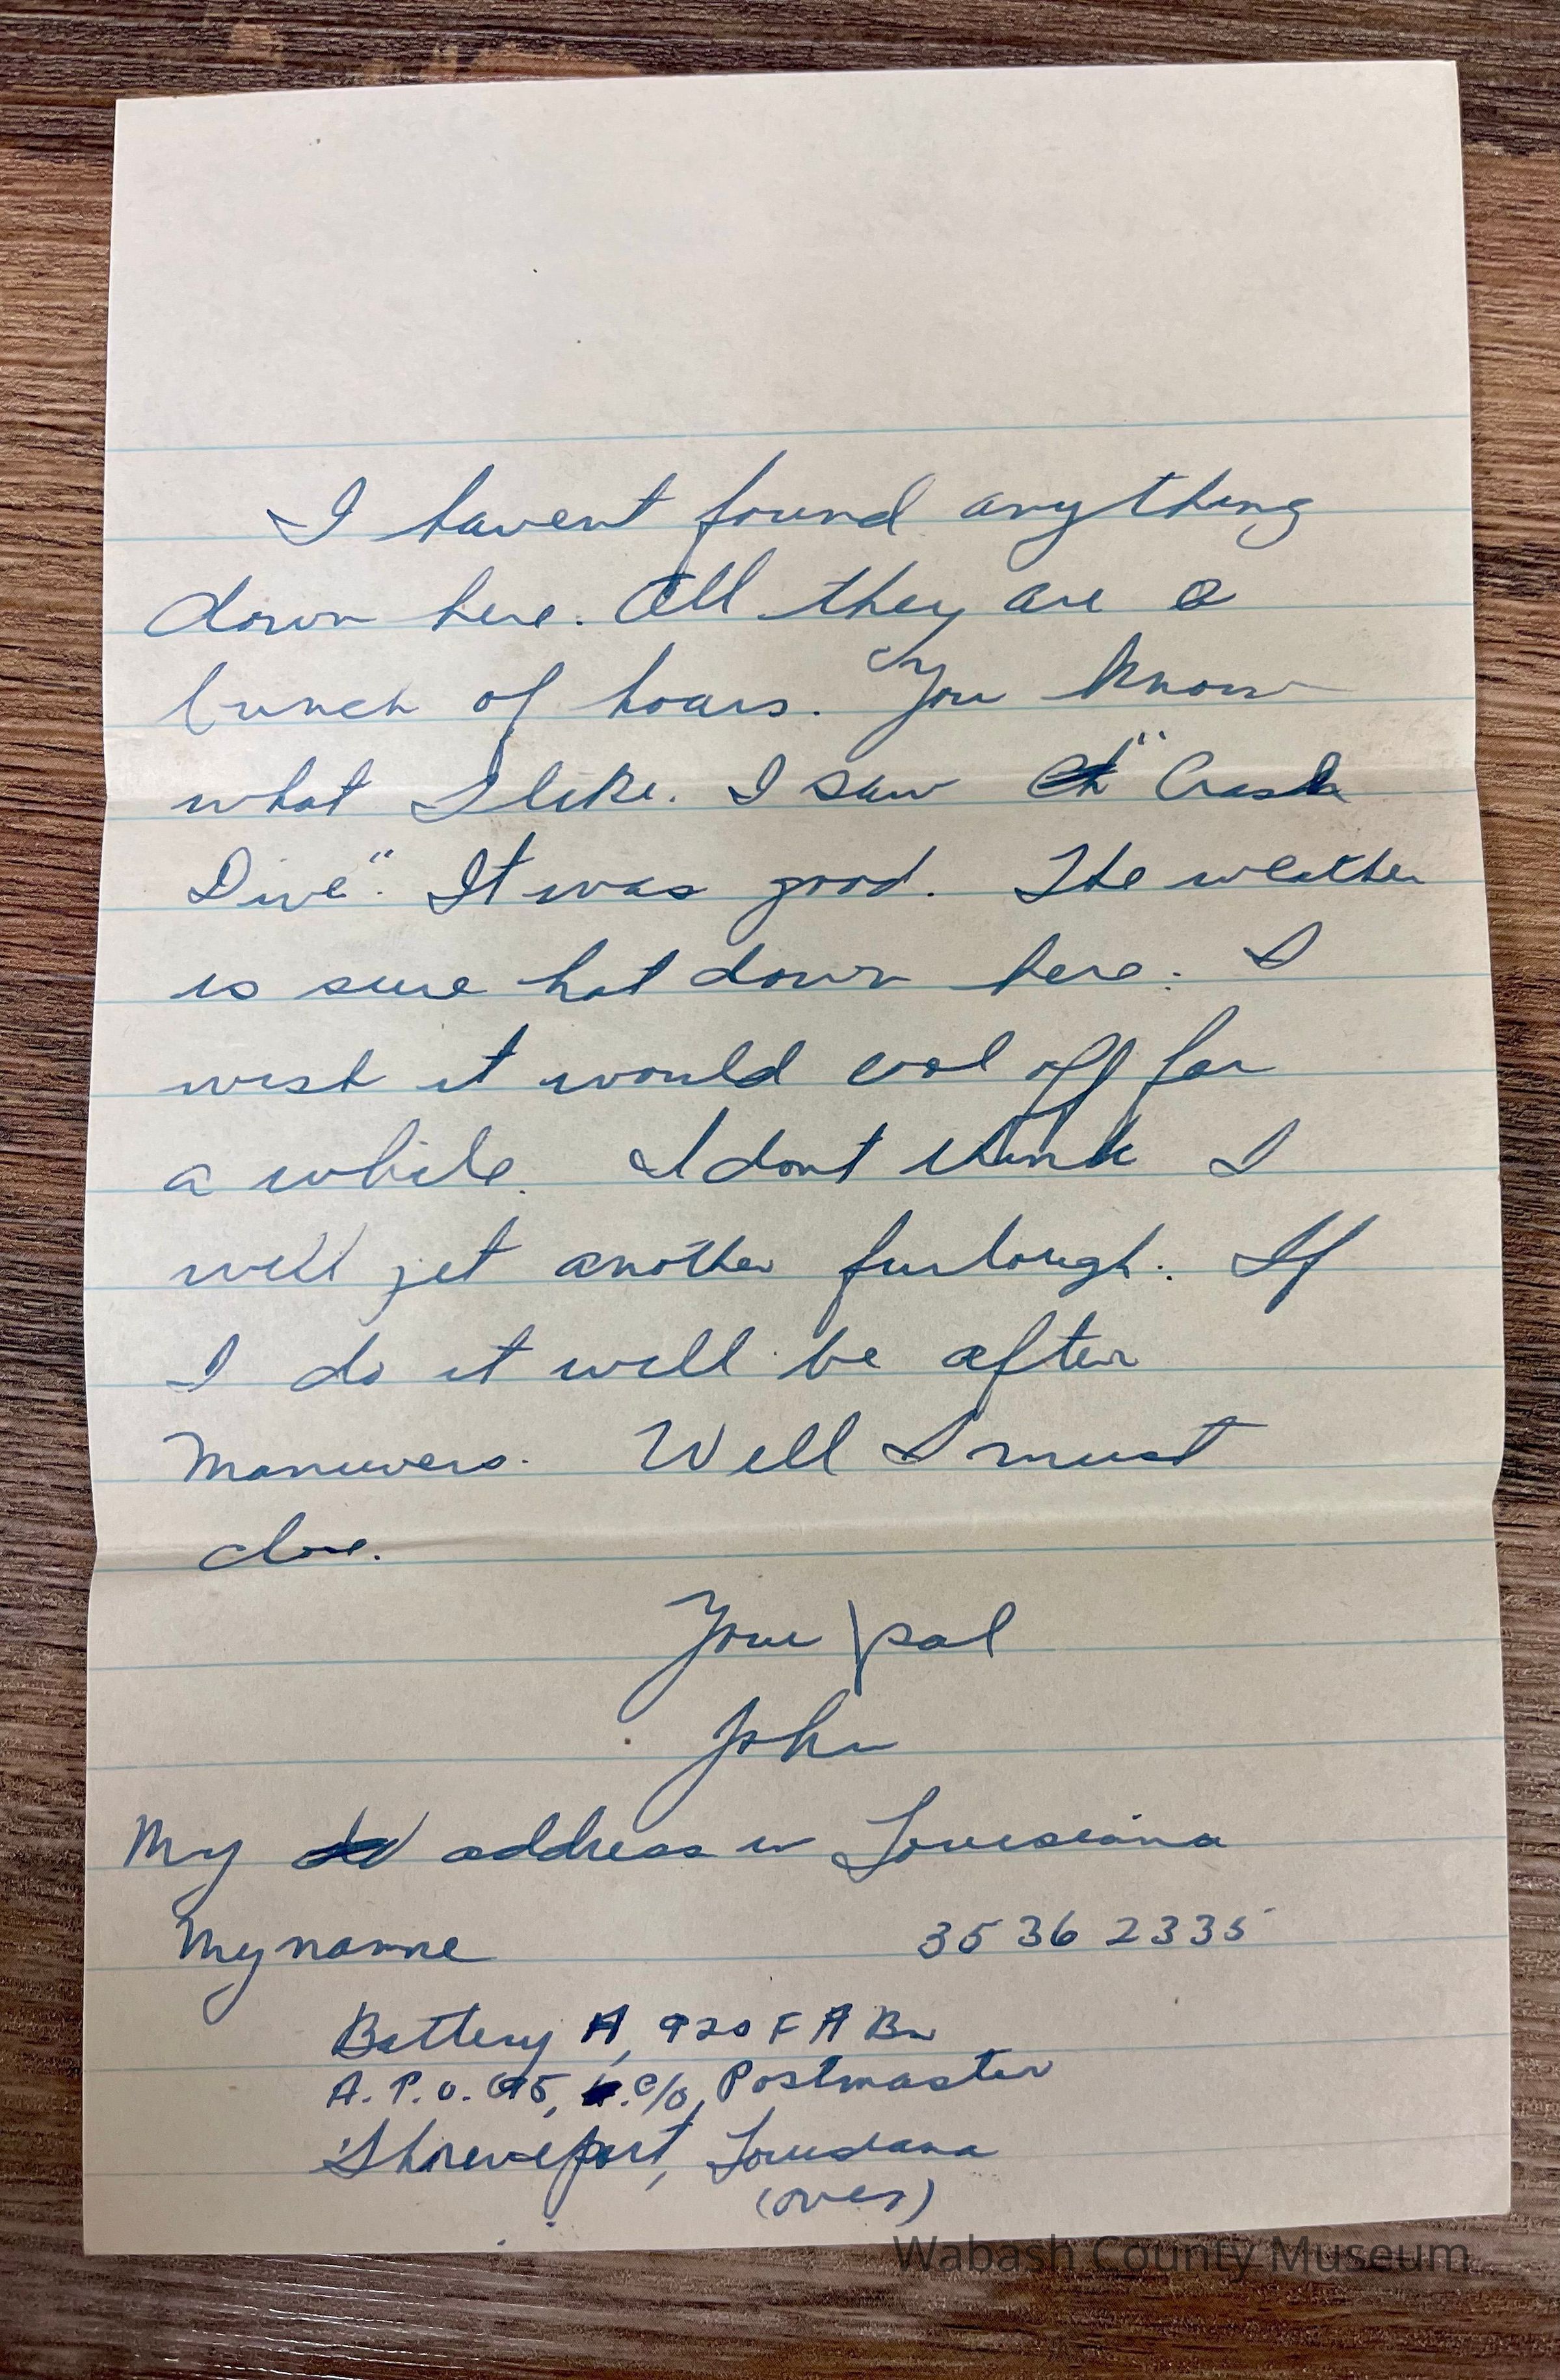 I havent found anything
down here. All they are a
bunch of hoars. You know
what I like. I saw "Crash
Dive". It was good. The weather
is sure hot down here. I
wish it would cool off for
a while. I dont think I
will get another furlough. If
I do it will be after
Manuvers. Well I must
close.
Your pal
John
My address in Louisiana
My name 35362335
Battery A, 920 F A Bn
A.P.O. 95, c/o, Postmaster
Shreveport, Louisiana
(over)
Wabash County Museum